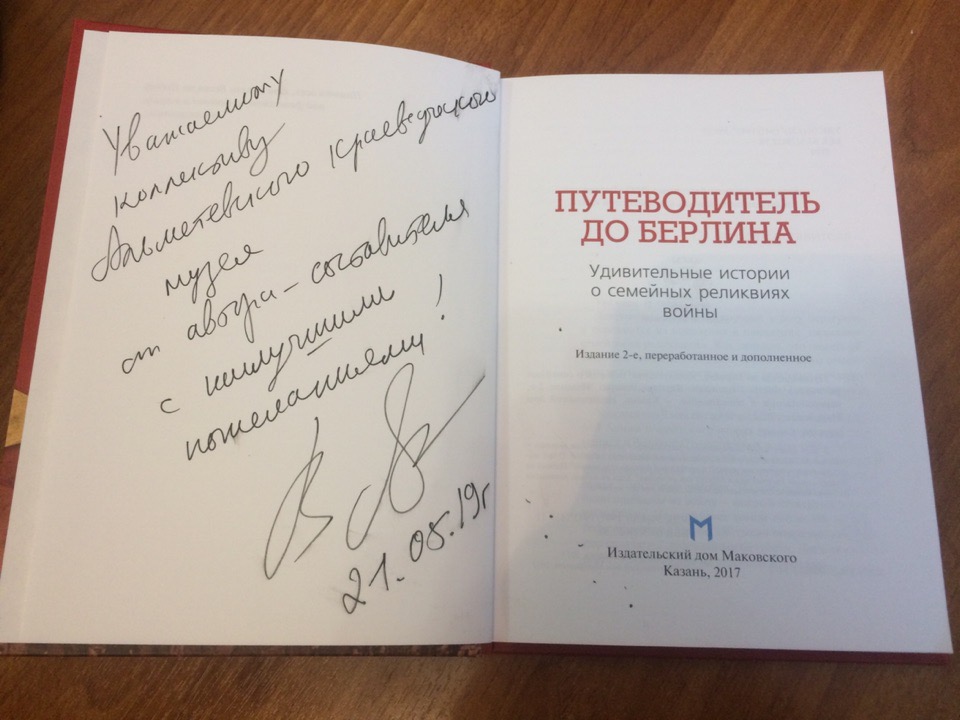 Уважаемому
коллективу
Альметевского краеведческого
музея
от автора-составителя
с наилучшими
пожеланиями!
21.08.19г
ПУТЕВОДИТЕЛЬ
ДО БЕРЛИНА
Удивительные истории
о семейных реликвиях
войны
Издание 2-е, переработанное и дополненное
М
Издательский дом Маковского
Казань, 2017